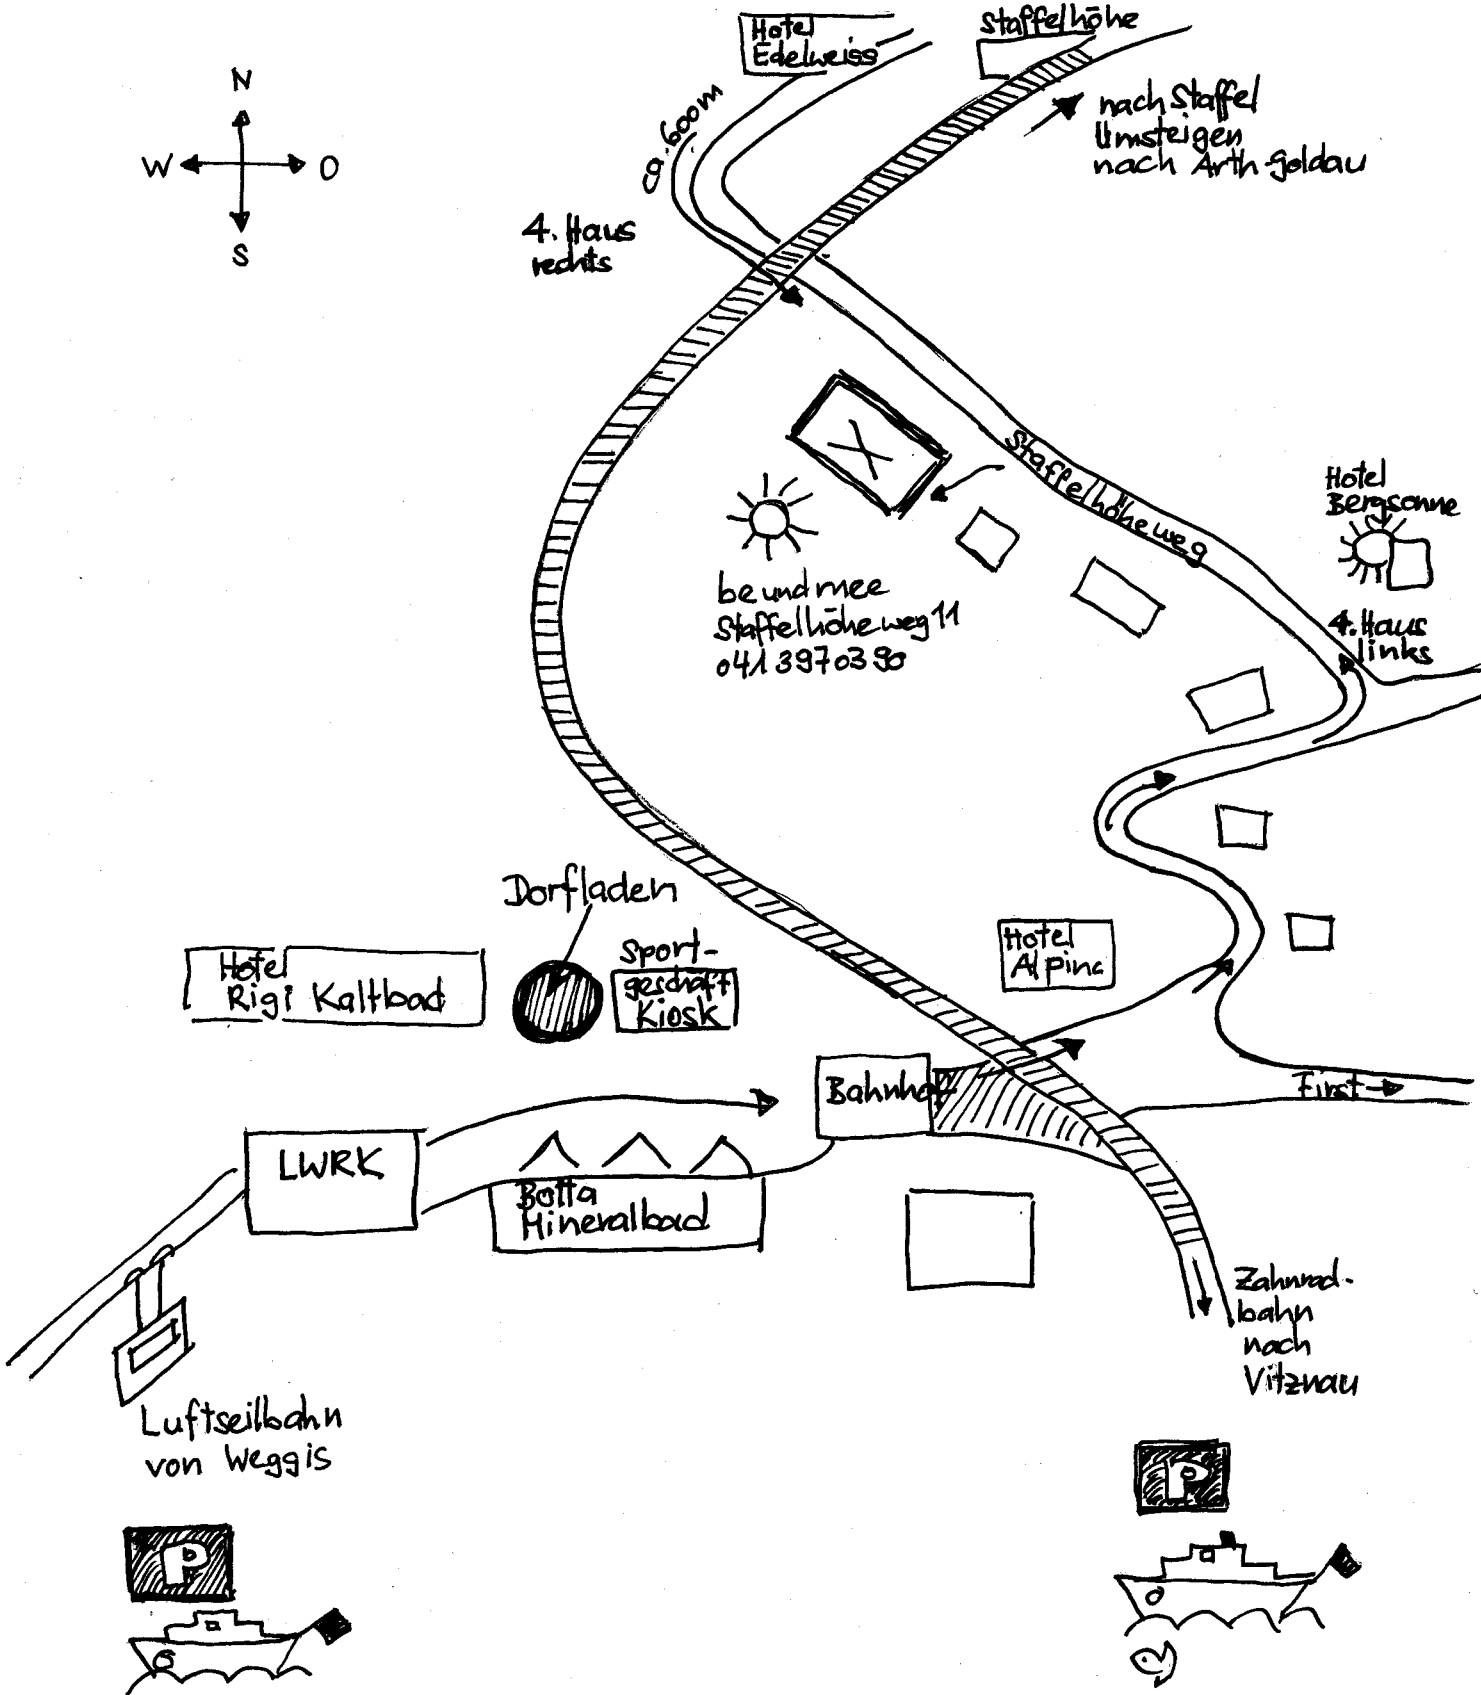 Hotel
Edelweiss
Staffelhöhe
N
W
O
S
ca. 600m
nach Staffel
Umsteigen
nach Arth-Goldau
4. Haus
rechts
Staffelhöheweg
Hotel
Bergsonne
4. Haus
links
be und mee
Staffelhöheweg 11
041 397 03 90
Dorfladen
Hotel
Rigi Kaltbad
Sport-
geschäft
Kiosk
Hotel
Alpina
Bahnhof
First
LWRK
Botta
Mineralbad
Zahnrad-
bahn
nach
Vitznau
Luftseilbahn
von Weggis
P
P